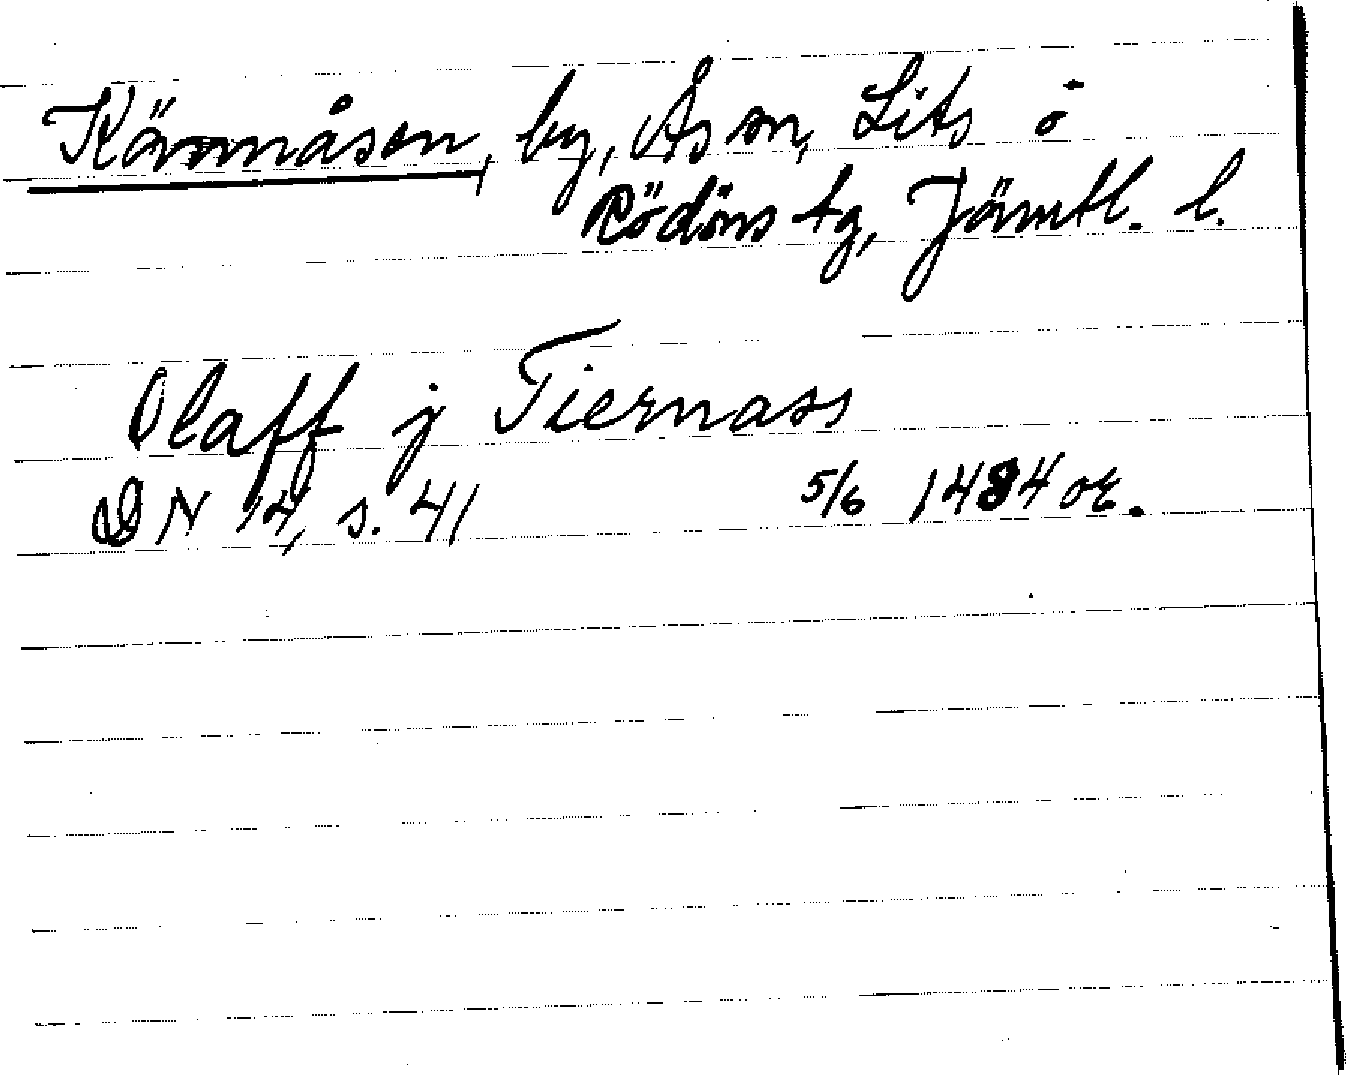 Kännåsen, by, Ås sn, Lits o
Rödöns tg, Jämtl. l.
Olaff j Tiernass
DN 14, s. 41 5/6 1434 or.